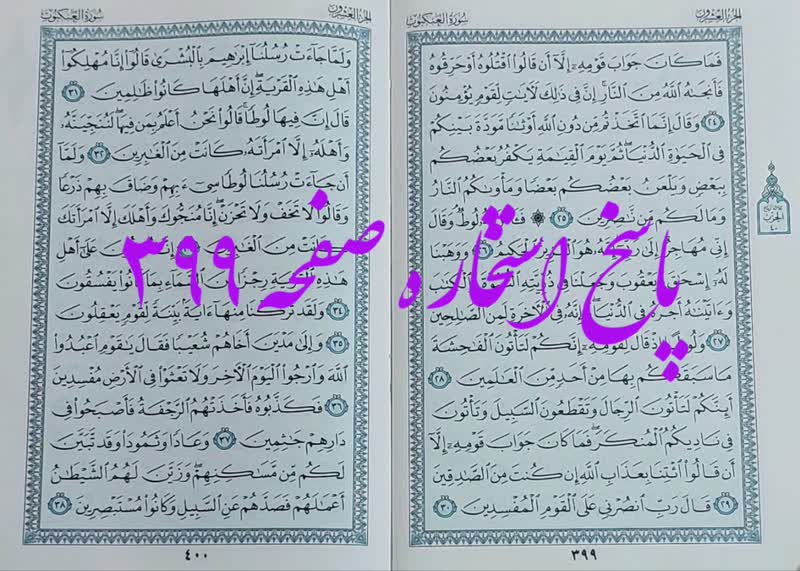 الجزء العشرون
سورة العنكبوت
فَمَا كَانَ جَوَابَ قَوْمِهِۦٓ إِلَّآ أَن قَالُوا۟ ٱقْتُلُوهُ أَوْ حَرِّقُوهُ
فَأَنجَىٰهُ ٱللَّهُ مِنَ ٱلنَّارِ إِنَّ فِى ذَٰلِكَ لَءَايَٰتٍ لِّقَوْمٍ يُؤْمِنُونَ
٢٤ وَقَالَ إِنَّمَا ٱتَّخَذْتُم مِّن دُونِ ٱللَّهِ أَوْثَٰنًا مَّوَدَّةَ بَيْنِكُمْ
فِى ٱلْحَيَوٰةِ ٱلدُّنْيَا ثُمَّ يَوْمَ ٱلْقِيَٰمَةِ يَكْفُرُ بَعْضُكُم
بِبَعْضٍ وَيَلْعَنُ بَعْضُكُم بَعْضًا وَمَأْوَىٰكُمُ ٱلنَّارُ
وَمَا لَكُم مِّن نَّٰصِرِينَ ٢٥ ۞ لُوطٌ وَقَالَ
إِنِّى مُهَاجِرٌ إِلَىٰ رَبِّىٓ إِنَّهُۥ هُوَ ٱلْعَزِيزُ ٱلْحَكِيمُ ٢٦ وَوَهَبْنَا
لَهُۥٓ إِسْحَٰقَ وَيَعْقُوبَ وَجَعَلْنَا فِى ذُرِّيَّتِهِ ٱلنُّبُوَّةَ وَٱلْكِتَٰبَ
وَءَاتَيْنَٰهُ أَجْرَهُۥ فِى ٱلدُّنْيَا وَإِنَّهُۥ فِى ٱلْءَاخِرَةِ لَمِنَ ٱلصَّٰلِحِينَ
٢٧ وَلُوطًا إِذْ قَالَ لِقَوْمِهِۦٓ إِنَّكُمْ لَتَأْتُونَ ٱلْفَٰحِشَةَ
مَا سَبَقَكُم بِهَا مِنْ أَحَدٍ مِّنَ ٱلْعَٰلَمِينَ ٢٨
أَئِنَّكُمْ لَتَأْتُونَ ٱلرِّجَالَ وَتَقْطَعُونَ ٱلسَّبِيلَ وَتَأْتُونَ
فِى نَادِيكُمُ ٱلْمُنكَرَ فَمَا كَانَ جَوَابَ قَوْمِهِۦٓ إِلَّآ
أَن قَالُوا۟ ٱئْتِنَا بِعَذَابِ ٱللَّهِ إِن كُنتَ مِنَ ٱلصَّٰدِقِينَ
٢٩ قَالَ رَبِّ ٱنصُرْنِى عَلَى ٱلْقَوْمِ ٱلْمُفْسِدِينَ ٣٠
٣٩٩
الحزب
٤٠
الجزء العشرون
سورة العنكبوت
وَلَمَّا جَآءَتْ رُسُلُنَآ إِبْرَٰهِيمَ بِٱلْبُشْرَىٰ قَالُوٓا۟ إِنَّا مُهْلِكُوٓا۟
أَهْلِ هَٰذِهِ ٱلْقَرْيَةِ إِنَّ أَهْلَهَا كَانُوا۟ ظَٰلِمِينَ ٣١
قَالَ إِنَّ فِيهَا لُوطًا قَالُوا۟ نَحْنُ أَعْلَمُ بِمَن فِيهَا لَنُنَجِّيَنَّهُۥ
وَأَهْلَهُۥٓ إِلَّا ٱمْرَأَتَهُۥ كَانَتْ مِنَ ٱلْغَٰبِرِينَ ٣٢ وَلَمَّآ
أَن جَآءَتْ رُسُلُنَا لُوطًا سِىٓءَ بِهِمْ وَضَاقَ بِهِمْ ذَرْعًا
وَقَالُوا۟ لَا تَخَفْ وَلَا تَحْزَنْ إِنَّا مُنَجُّوكَ وَأَهْلَكَ إِلَّا ٱمْرَأَتَكَ
كَانَتْ مِنَ ٱلْغَٰبِرِينَ عَلَىٰٓ أَهْلِ
هَٰذِهِ ٱلْقَرْيَةِ رِجْزًا مِّنَ ٱلسَّمَآءِ بِمَا كَانُوا۟ يَفْسُقُونَ
٣٤ وَلَقَد تَّرَكْنَا مِنْهَآ ءَايَةًۢ بَيِّنَةً لِّقَوْمٍ يَعْقِلُونَ
٣٥ وَإِلَىٰ مَدْيَنَ أَخَاهُمْ شُعَيْبًا فَقَالَ يَٰقَوْمِ ٱعْبُدُوا۟
ٱللَّهَ وَٱرْجُوا۟ ٱلْيَوْمَ ٱلْءَاخِرَ وَلَا تَعْثَوْا۟ فِى ٱلْأَرْضِ مُفْسِدِينَ
٣٦ فَكَذَّبُوهُ فَأَخَذَتْهُمُ ٱلرَّجْفَةُ فَأَصْبَحُوا۟ فِى
دَارِهِمْ جَٰثِمِينَ ٣٧ وَعَادًا وَثَمُودَا۟ وَقَد تَّبَيَّنَ
لَكُم مِّن مَّسَٰكِنِهِمْ وَزَيَّنَ لَهُمُ ٱلشَّيْطَٰنُ
أَعْمَٰلَهُمْ فَصَدَّهُمْ عَنِ ٱلسَّبِيلِ وَكَانُوا۟ مُسْتَبْصِرِينَ ٣٨
٤٠٠
پاسخ استخاره صفحه ۳۹۹